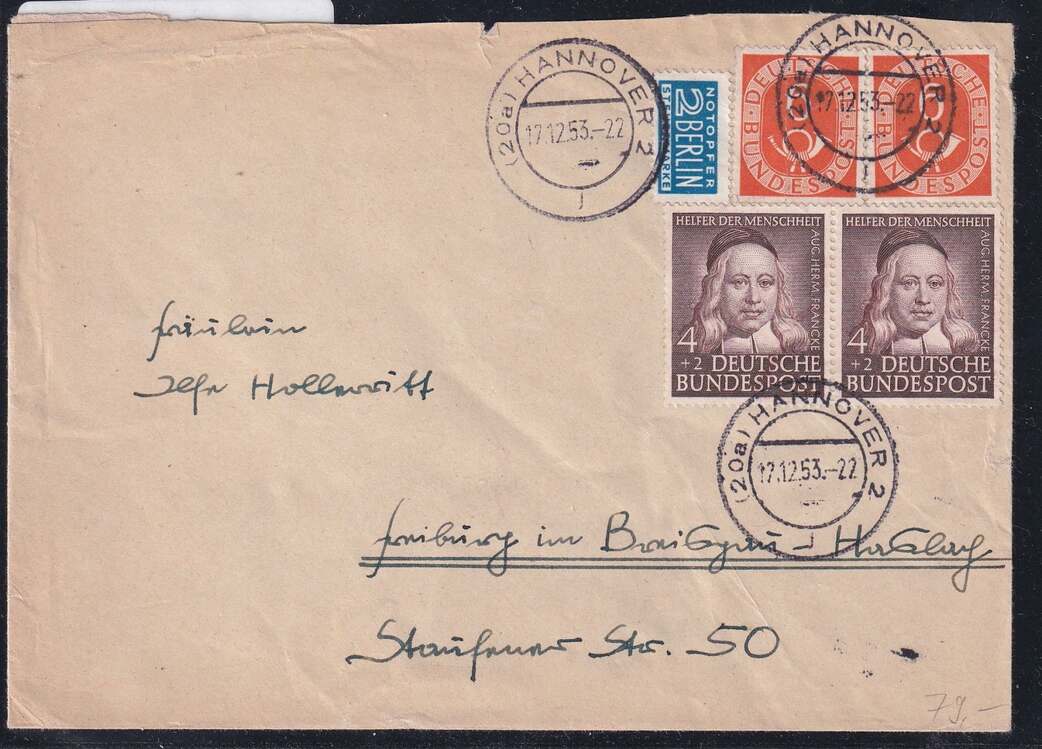 (20a) HANNOVER 2
17.12.53.-22
j
NOTOPFER
2 BERLIN
STEUERMARKE
DEUTSCHE BUNDESPOST
DEUTSCHE BUNDESPOST
(20a) HANNOVER 2
17.12.53.-22
j
HELFER DER MENSCHHEIT
AUG. HERM. FRANCKE
4
+2 DEUTSCHE
BUNDESPOST
HELFER DER MENSCHHEIT
AUG. HERM. FRANCKE
4
+2 DEUTSCHE
BUNDESPOST
(20a) HANNOVER 2
17.12.53.-22
j
Fräulein
Ilse Hollerritt
Freiburg im Breisgau - Haslach
Staufener Str. 50
79,-